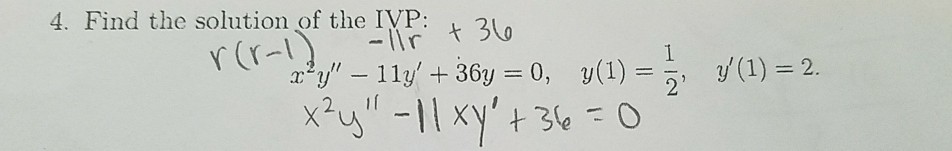 4. Find the solution of the IVP:
r(r-1) -11r + 36
x²y″ − 11y′ + 36y = 0, y(1) = 1/2, y′(1) = 2.
x²y″ - 11xy′ + 36 = 0